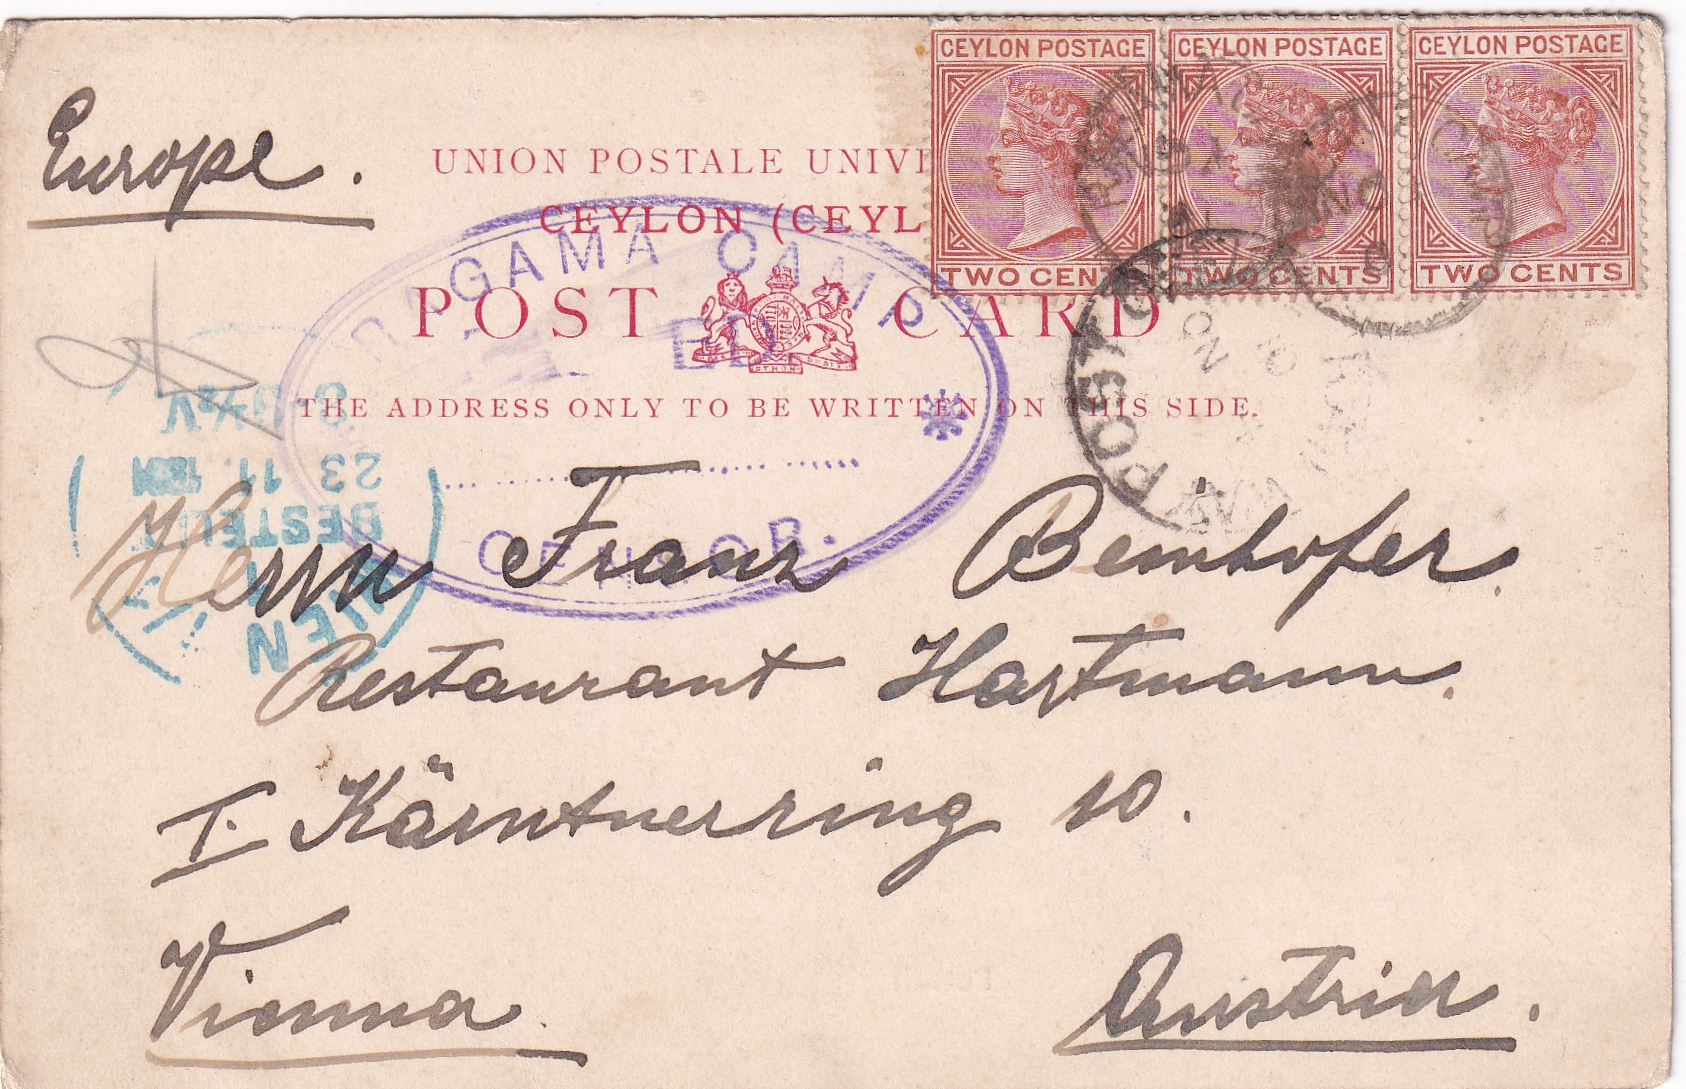 CEYLON POSTAGE CEYLON POSTAGE CEYLON POSTAGE
TWO CENTS TWO CENTS TWO CENTS
Europe.
UNION POSTALE UNIVE
CEYLON (CEYL
POST CARD
THE ADDRESS ONLY TO BE WRITTEN ON THIS SIDE.
GAMA CAMP
ED
CENSOR.
POST
WIEN
BESTELLT
23 11
Herrn Franz Bernhofer.
Restaurant Hartmann.
I. Kärntnerring 10.
Vienna.
Austria.